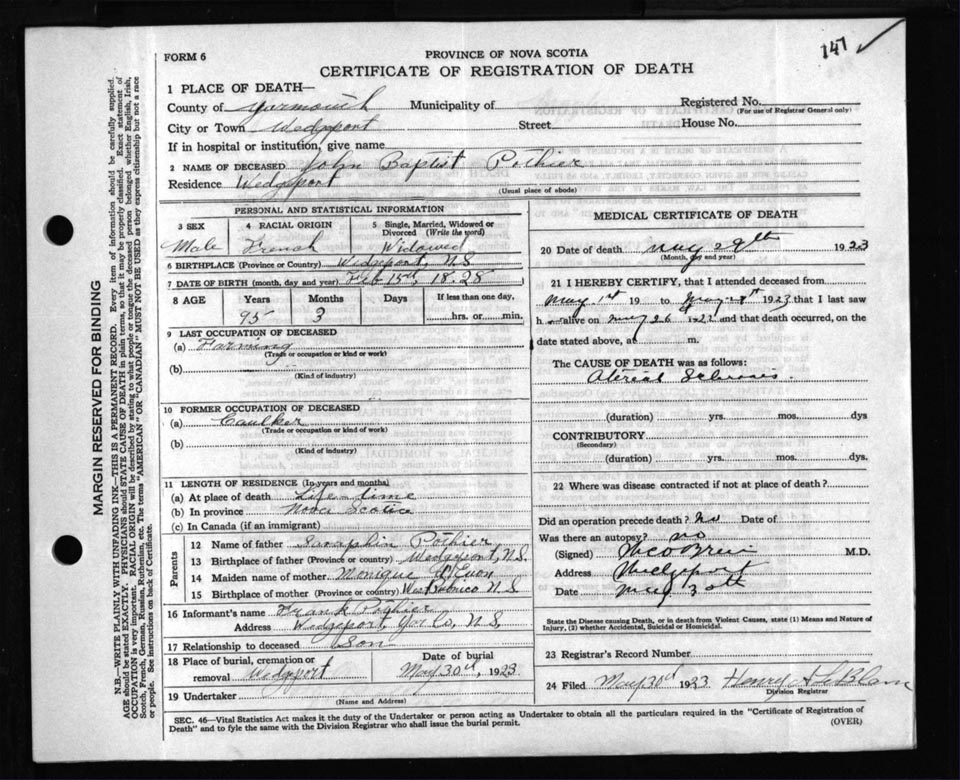 147 ✓
FORM 6
PROVINCE OF NOVA SCOTIA
CERTIFICATE OF REGISTRATION OF DEATH
1 PLACE OF DEATH—
County of Yarmouth Municipality of Registered No.
(For use of Registrar General only)
City or Town Wedgeport Street House No.
If in hospital or institution, give name
2 NAME OF DECEASED John Baptist Pothier
Residence Wedgeport
(Usual place of abode)
PERSONAL AND STATISTICAL INFORMATION
3 SEX Male
4 RACIAL ORIGIN French
5 Single, Married, Widowed or Divorced (Write the word) Widowed
6 BIRTHPLACE (Province or Country) Wedgeport, N.S
7 DATE OF BIRTH (month, day and year) Feb 15th, 1828
8 AGE Years 95 Months 3 Days If less than one day, hrs. or min.
9 LAST OCCUPATION OF DECEASED
(a) Farming
(Trade or occupation or kind or work)
(b)
(Kind of industry)
10 FORMER OCCUPATION OF DECEASED
(a) Caulker
(Trade or occupation or kind or work)
(b)
(Kind of industry)
11 LENGTH OF RESIDENCE (In years and months)
(a) At place of death Life-time
(b) In province Nova Scotia
(c) In Canada (if an immigrant)
Parents
12 Name of father Saraphin Pothier
13 Birthplace of father (Province or country) Wedgeport, N.S.
14 Maiden name of mother Monique
15 Birthplace of mother (Province or country) West Pubnico N.S
16 Informant's name Frank Pothier
Address Wedgeport Yar Co, N.S.
17 Relationship to deceased Son
18 Place of burial, cremation or removal Wedgeport Date of burial May 30th, 1923
19 Undertaker
(Name and Address)
MEDICAL CERTIFICATE OF DEATH
20 Date of death May 29th 1923
(Month, day and year)
21 I HEREBY CERTIFY, that I attended deceased from
May 1st 19 to 1923 that I last saw
h alive on May 26 and that death occurred, on
date stated above, at m.
The CAUSE OF DEATH was as follows:
(duration) yrs. mos. dys
CONTRIBUTORY
(Secondary)
(duration) yrs. mos. dys.
22 Where was disease contracted if not at place of death?
Did an operation precede death? No Date of
Was there an autopsy? no
(Signed) M.D.
Address Wedgeport
Date May 30th
State the Disease causing Death, or in death from Violent Causes, state (1) Means and Nature of
Injury, (2) whether Accidental, Suicidal or Homicidal.
23 Registrar's Record Number
24 Filed May 30th 1923 Henry LeBlanc
Division Registrar
SEC. 46—Vital Statistics Act makes it the duty of the Undertaker or person acting as Undertaker to obtain all the particulars required in the "Certificate of Registration of
Death" and to fyle the same with the Division Registrar who shall issue the burial permit.
(OVER)
MARGIN RESERVED FOR BINDING
N.B.—WRITE PLAINLY WITH UNFADING INK—THIS IS A PERMANENT RECORD. Every item of information should be carefully supplied.
AGE should be stated EXACTLY. PHYSICIANS should STATE CAUSE OF DEATH in plain terms, so that it may be properly classified. Exact statement of
OCCUPATION is very important. RACIAL ORIGIN will be described by stating to what people or tongue the deceased person belonged whether English, Irish,
Scotch, French, German, Russian, Ruthenian, etc. The terms "AMERICAN" OR "CANADIAN" MUST NOT BE USED as they express citizenship but not a race
or people. See instructions on back of Certificate.